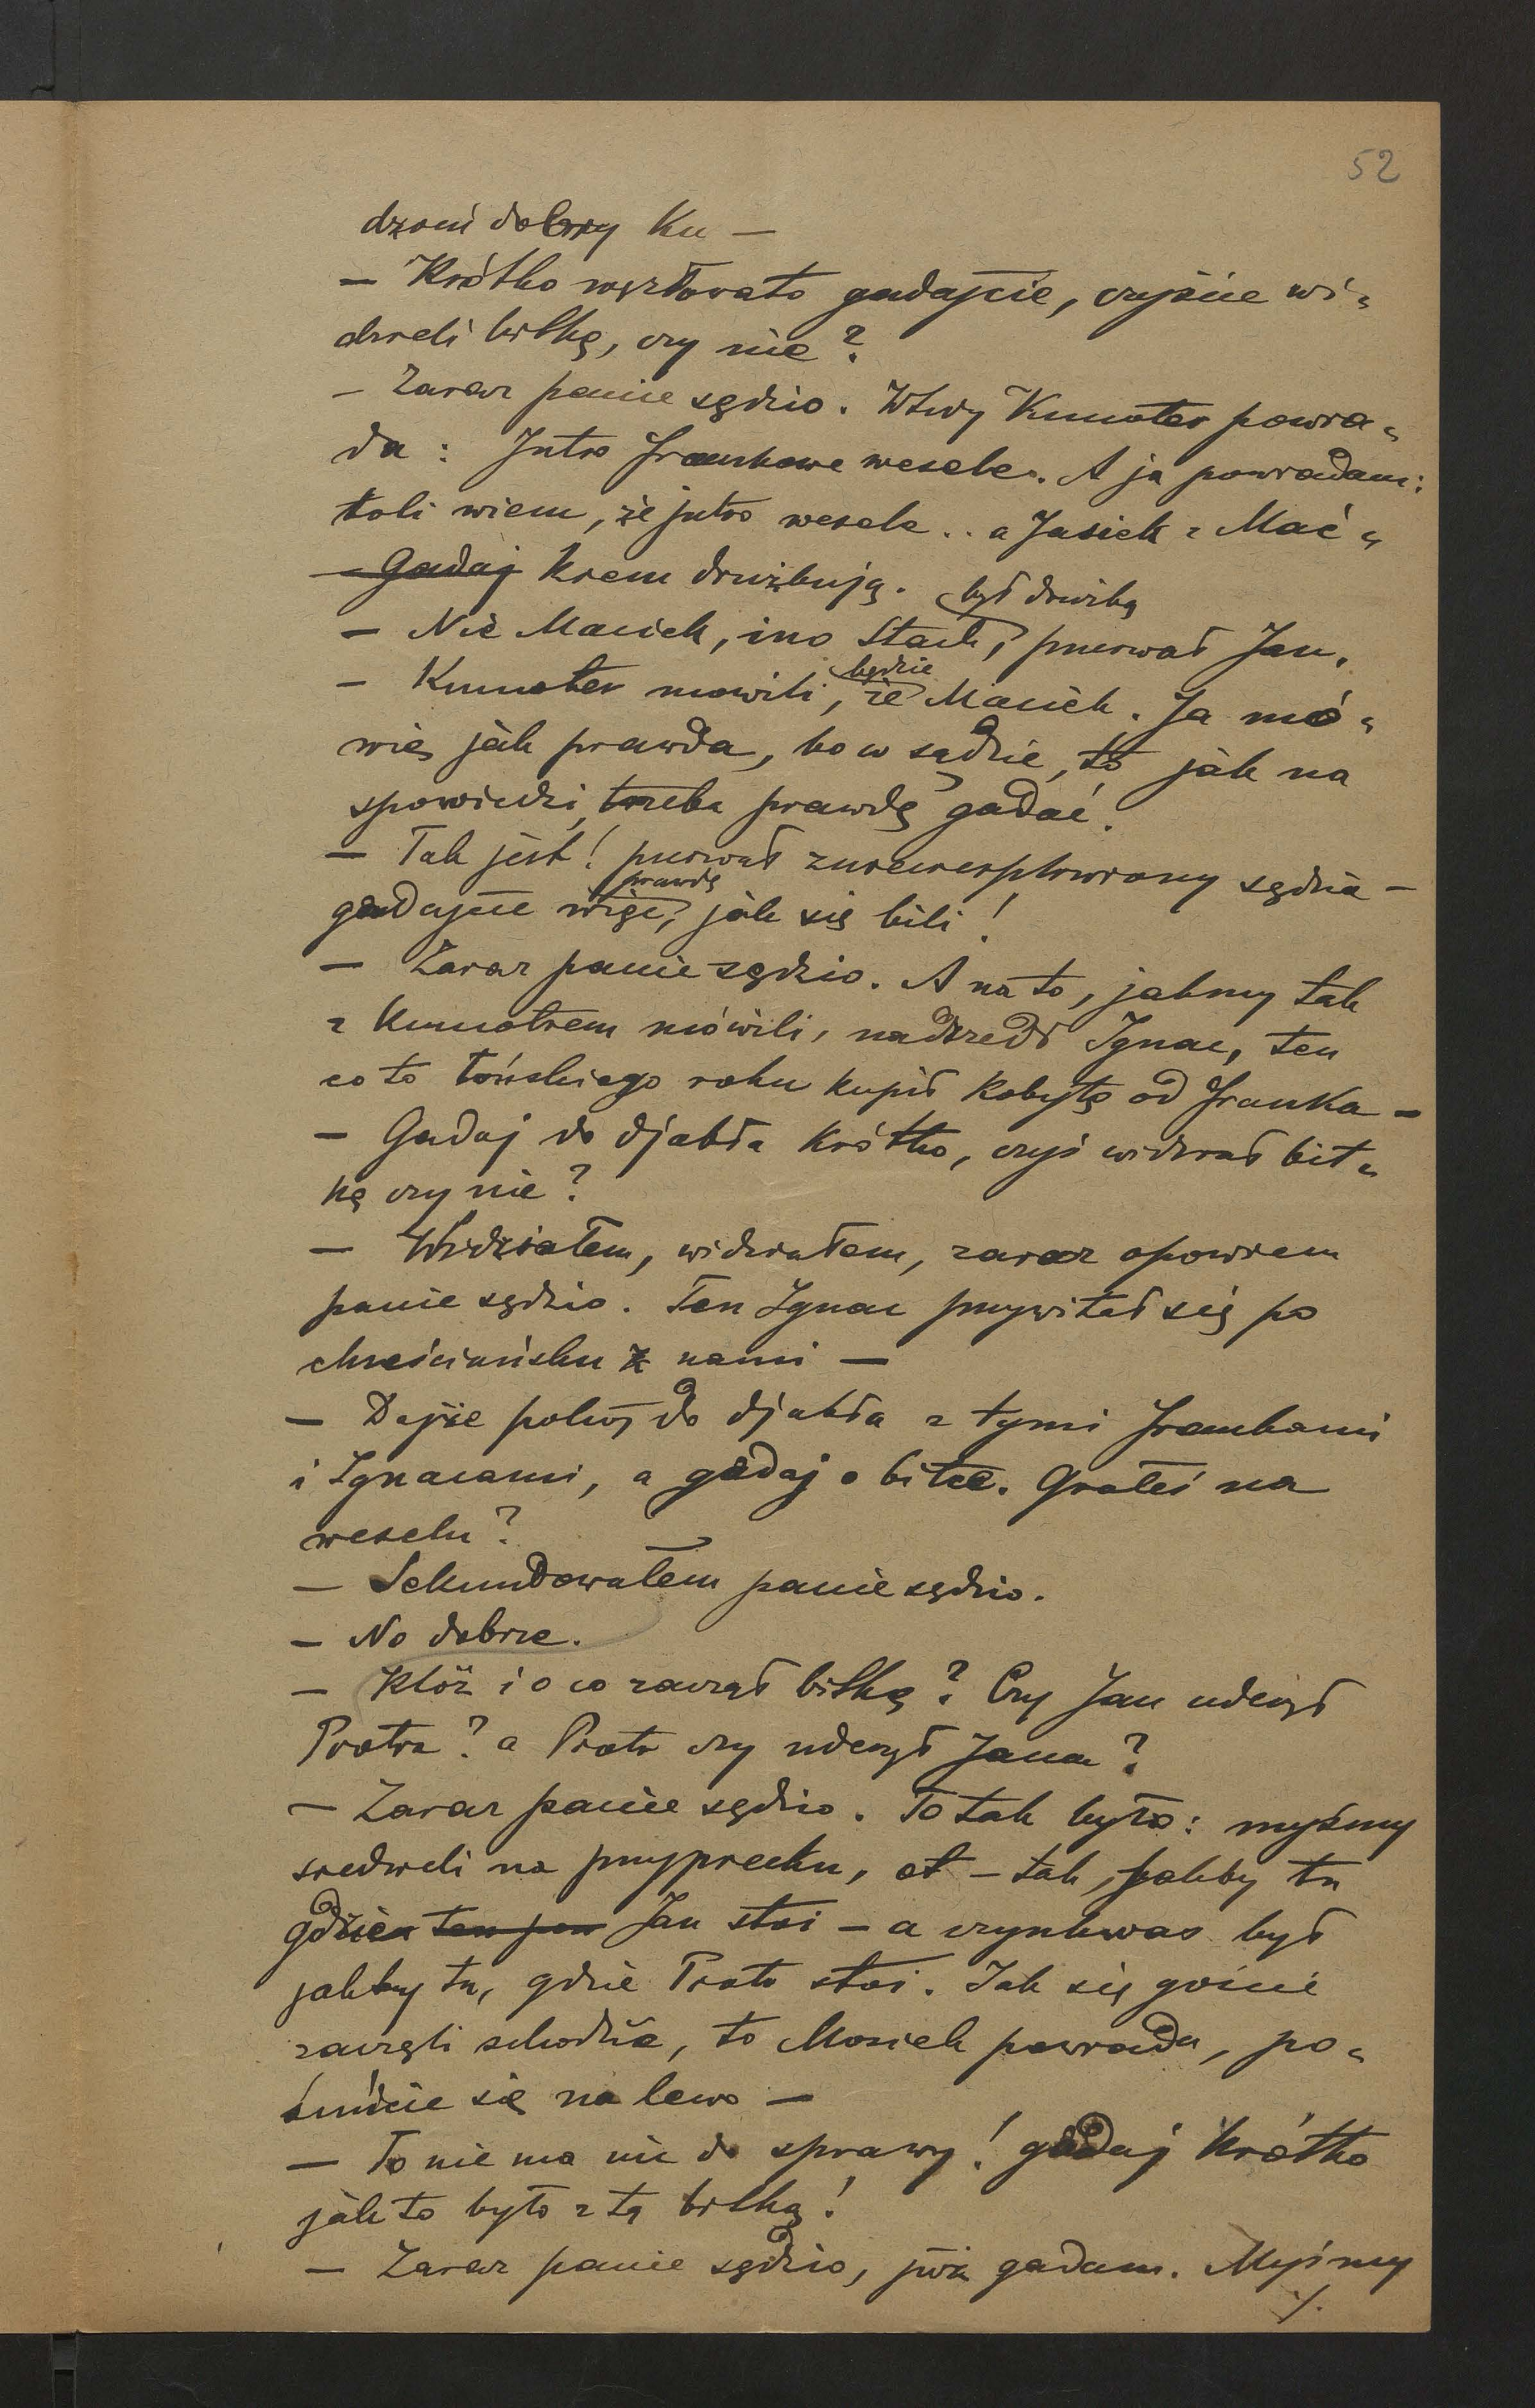 52
dzoni dobry Ku —
— Krótko węzłowato gadajcie, czyście wi-
dzieli bitkę, czy nie?
— Zaraz panie sędzio. Wtedy Kumoter powia-
da: Jutro Frankowe wesele. A ja powiadam:
toli wiem, że jutro wesele .. a Jasiek z Mać-
— Gadaj kiem drużbują. był drużbą
— Nie Maciek, ino Stach, przerwał Jan.
będzie
— Kumoter mówili, że Maciek. Ja mó-
wię jak prawda, bo w sądzie, to jak na
spowiedzi, trzeba prawdę gadać.
— Tak jest! przerwał zniecierpliwiony sędzia —
prawdę
gadajcie więc, jak się bili!
— Zaraz panie sędzio. A na to, jakmy tak
z Kumotrem mówili, nadszedł Ignac, ten
co to łońskiego roku kupił kobyłę od Franka —
— Gadaj do djabła krótko, czyś widział bit-
kę czy nie?
— Widziałem, widziałem, zaraz opowiem
panie sędzio. Ten Ignac przywitał się po
chrześciańsku z nami —
— Dajże pokój do djabła z tymi Frankami
i Ignacami, a gadaj o bitce. Grałeś na
weselu?
— Sekundowałem panie sędzio.
— No dobrze.
— Któż i o co zaczął bitkę? Czy Jan uderzył
Piotra? a Piotr czy uderzył Jana?
— Zaraz panie sędzio. To tak było: myśmy
siedzieli na przypiecku, ot — tak, jakby tu
gdzie ten pan Jan stoi — a czynkwas był
jakby tu, gdzie Piotr stoi. Jak się goście
zaczęli schodzić, to Mosiek powiada, po-
suńcie się na lewo —
— To nie ma nic do sprawy! gadaj krótko
jak to było z tą bitką!
— Zaraz panie sędzio, już gadam. Myśmy
./.